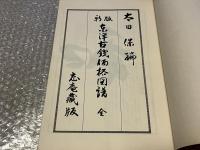 太田保編
新版
東洋古銭価格図譜 全
志庵蔵版